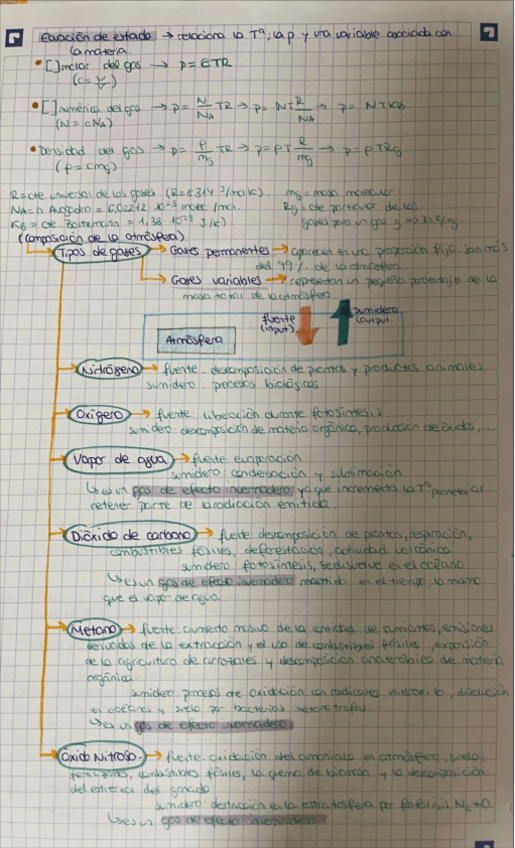 Ecuación de estado → relaciona la Tª, la p y una variable asociada con
la materia.
• [] molar del gas → p = cTR
(c = n/V)
• [] numérica del gas → p = N/NA TR → p = NT R/NA → p = NTKB
(N = cNA)
• Densidad del gas → p = ρ/mg TR → p = ρT R/mg → p = ρTRg
(ρ = cmg)
R = cte universal de los gases (R = 8'314 J/mol K). mg = masa molecular
NA = n Avogadro = 6,02212 · 10⁻²³ molec/mol. Rg = cte particular de los
KB = cte Boltzmann = 1,38 · 10⁻²³ J/K) gases para un gas g
(Composición de la atmósfera)
Tipos de gases → Gases permanentes → aparecen en una proporción fija, son más
del 99% de la atmósfera
→ Gases variables → representan un pequeño porcentaje de la
masa total de la atmósfera
fuente (input) sumidero (output)
Atmósfera
Nitrógeno → fuente: descomposición de plantas y productos animales
sumidero: procesos biológicos
Oxígeno → fuente: liberación durante fotosíntesis
sumidero: descomposición de materia orgánica, producción de óxidos, ...
Vapor de agua → fuente evaporación
sumidero: condensación y sublimación
↳ es un gas de efecto invernadero ya que incrementa la Tª planeta al
retener parte de la radiación emitida
Dióxido de carbono → fuente descomposición de plantas, respiración,
combustibles fósiles, deforestación, actividad volcánica
sumidero fotosíntesis, se disuelve en el océano
↳ es un gas de efecto invernadero mantido en el tiempo, lo mismo
que el vapor de agua
Metano → fuente: aumento masivo de la cantidad de rumiantes, emisiones
derivadas de la extracción y el uso de combustibles fósiles, expansión
de la agricultura de arrozales y descomposición anaeróbica de materia
orgánica
sumidero proceso de oxidación con radicales hidroxilo, disolución
en océanos y suelo por bacterias metanotrofas.
↳ es un gas de efecto invernadero
Óxido Nitroso → fuente: oxidación del amoniaco en atmósfera, suelo,
fertilizantes, combustibles fósiles, la quema de biomasa y la descomposición
del estiércol del ganado
sumidero: destrucción en la estratosfera por fotólisis N₂ + O
↳ es un gas de efecto invernadero